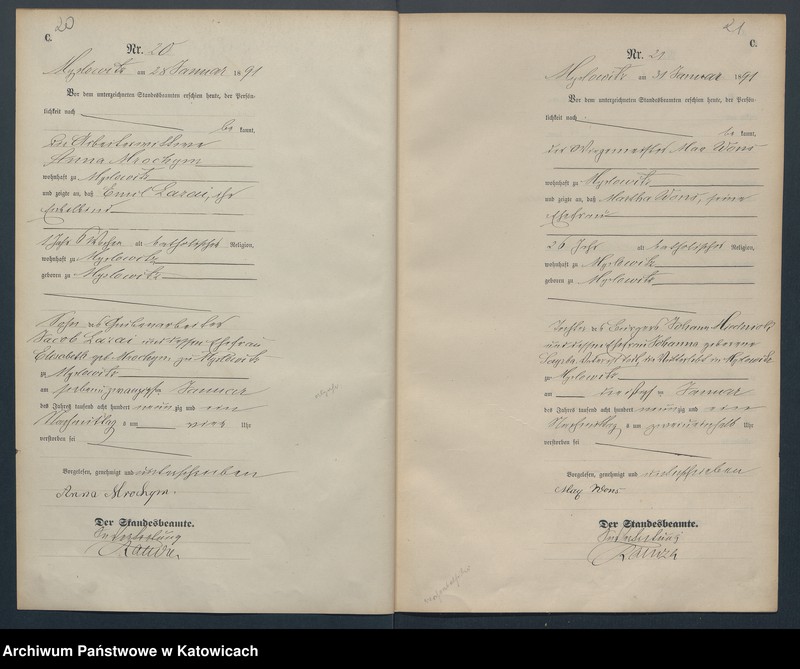 20
C.
Nr. 20
Myslowitz am 28 Januar 1891
Vor dem unterzeichneten Standesbeamten erschien heute, der Persön-
lichkeit nach
be kannt,
die Arbeiterwittwe
Anna Mrochem
wohnhaft zu Myslowitz
und zeigte an, daß Emil Lazai, ihr
Enkelkind
1 Jahr 6 Wochen alt katholischer Religion,
wohnhaft zu Myslowitz
geboren zu Myslowitz
Sohn des Grubenarbeiter
Jacob Lazai und dessen Ehefrau
Elisabeth geb. Mrochem zu Myslowitz
zu Myslowitz
am siebenundzwanzigsten Januar
des Jahres tausend acht hundert neun zig und ein
Nachmittag s um vier Uhr
verstorben sei
Vorgelesen, genehmigt und unterschrieben
Anna Mrochem.
Der Standesbeamte.
In Vertretung
21
C.
Nr. 21
Myslowitz am 31 Januar 1891
Vor dem unterzeichneten Standesbeamten erschien heute, der Persön-
lichkeit nach
be kannt,
der Wiegemeister Max Wons
wohnhaft zu Myslowitz
und zeigte an, daß Martha Wons, seine
Ehefrau
26 Jahr alt katholischer Religion,
wohnhaft zu Myslowitz
geboren zu Myslowitz
Tochter des Bürgers Johann
und dessen Ehefrau Johanna geborene
in Myslowitz
zu Myslowitz
am dreißigsten Januar
des Jahres tausend acht hundert neun zig und ein
Nachmittag s um zweieinhalb Uhr
verstorben sei
Vorgelesen, genehmigt und unterschrieben
Max Wons
Der Standesbeamte.
In Vertretung
Archiwum Państwowe w Katowicach